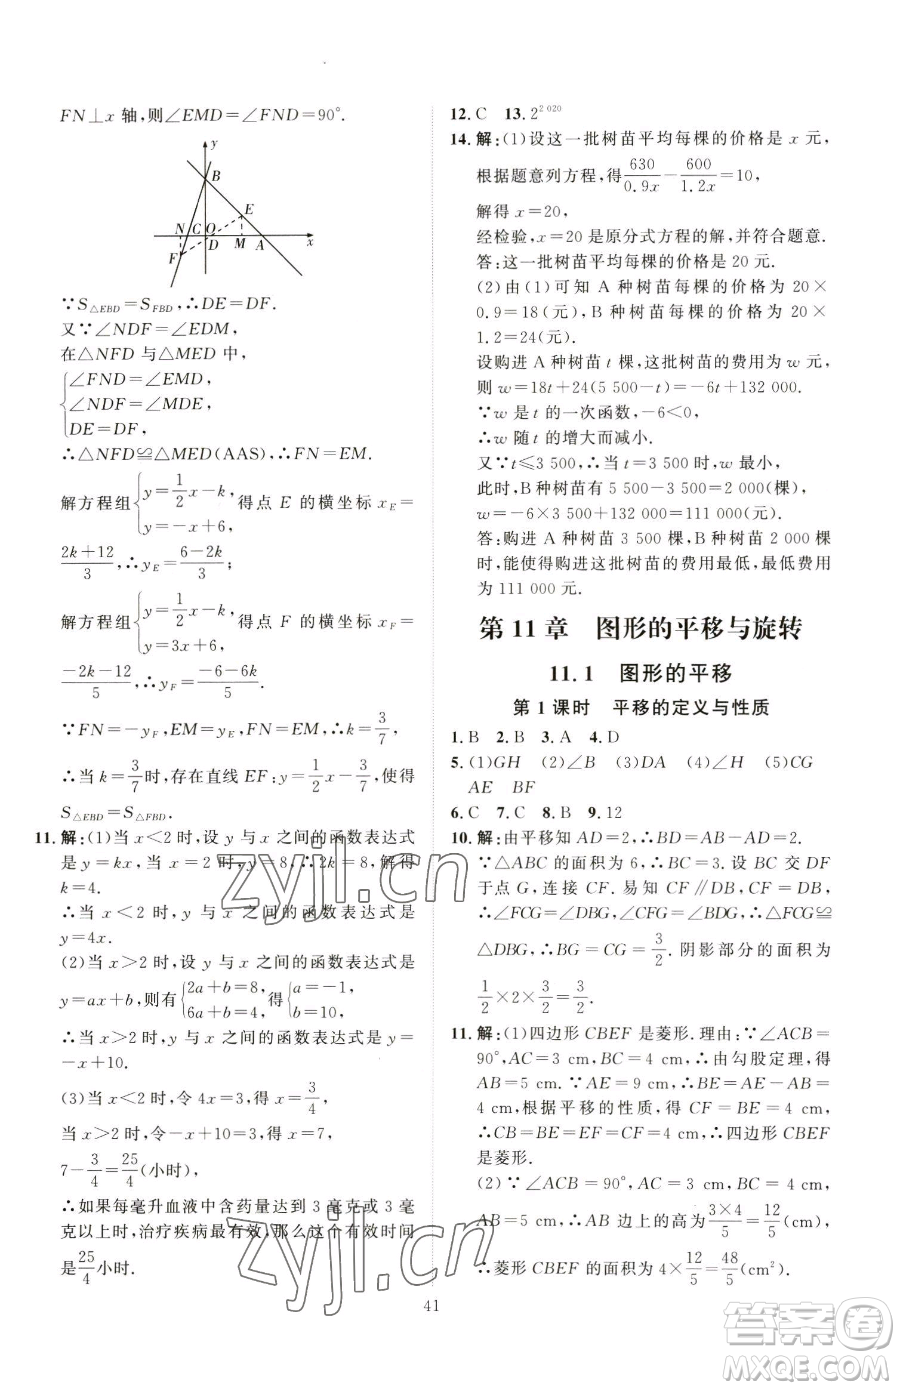 FN⊥x 轴,则∠EMD=∠FND=90°.
y
B
E
N C O
D M A x
F
∵S△EBD=S_FBD,∴DE=DF.
又∵∠NDF=∠EDM,
在△NFD 与△MED 中,
∠FND=∠EMD,
∠NDF=∠MDE,
DE=DF,
∴△NFD≌△MED(AAS),∴FN=EM.
解方程组{y=1/2x-k, y=-x+6, 得点 E 的横坐标 x_E=
(2k+12)/3,∴y_E=(6-2k)/3;
解方程组{y=1/2x-k, y=3x+6, 得点 F 的横坐标 x_F=
(-2k-12)/5,∴y_F=(-6-6k)/5.
∵FN=-y_F,EM=y_E,FN=EM,∴k=3/7,
∴当 k=3/7时,存在直线 EF:y=1/2x-3/7,使得
S△EBD=S△FBD.
11. 解:(1)当 x<2 时,设 y 与 x 之间的函数表达式
是 y=kx,当 x=2 时,y=8,∴2k=8,解得
k=4.
∴当 x<2 时,y 与 x 之间的函数表达式是
y=4x.
(2)当 x>2 时,设 y 与 x 之间的函数表达式是
y=ax+b,则有{2a+b=8, 6a+b=4, 得{a=-1, b=10.
∴当 x>2 时,y 与 x 之间的函数表达式是 y=
-x+10.
(3)当 x<2 时,令 4x=3,得 x=3/4,
当 x>2 时,令-x+10=3,得 x=7,
7-3/4=25/4(小时),
∴如果每毫升血液中含药量达到 3 毫克或 3 毫
克以上时,治疗疾病最有效,那么这个有效时间
是25/4小时.
12. C 13. 2^2 020
14. 解:(1)设这一批树苗平均每棵的价格是 x 元,
根据题意列方程,得630/0.9x-600/1.2x=10,
解得 x=20,
经检验,x=20 是原分式方程的解,并符合题意.
答:这一批树苗平均每棵的价格是 20 元.
(2)由(1)可知 A 种树苗每棵的价格为 20×
0.9=18(元),B 种树苗每棵的价格为 20×
1.2=24(元).
设购进 A 种树苗 t 棵,这批树苗的费用为 w 元,
则 w=18t+24(5 500-t)=-6t+132 000.
∵w 是 t 的一次函数,-6<0,
∴w 随 t 的增大而减小.
又∵t≤3 500,∴当 t=3 500 时,w 最小,
此时,B 种树苗有 5 500-3 500=2 000(棵),
w=-6×3 500+132 000=111 000(元).
答:购进 A 种树苗 3 500 棵,B 种树苗 2 000 棵
时,能使得购进这批树苗的费用最低,最低费用
为 111 000 元.
第 11 章 图形的平移与旋转
11.1 图形的平移
第 1 课时 平移的定义与性质
1. B 2. B 3. A 4. D
5. (1)GH (2)∠B (3)DA (4)∠H (5)CG
AE BF
6. C 7. C 8. B 9. 12
10. 解:由平移知 AD=2,∴BD=AB-AD=2.
∵△ABC 的面积为 6,∴BC=3. 设 BC 交 DF
于点 G,连接 CF. 易知 CF∥DB,CF=DB,
∴∠CFG=∠DBG,∠CFG=∠BDG,∴△CFG≌
△DBG,∴BG=CG=3/2. 阴影部分的面积为
1/2×2×3/2=3/2.
11. 解:(1)四边形 CBEF 是菱形. 理由:∵∠ACB=
90°,AC=3 cm,BC=4 cm,∴由勾股定理,得
AB=5 cm. ∵AE=9 cm,∴BE=AE-AB=
4 cm,根据平移的性质,得 CF=BE=4 cm,
∴CB=BE=EF=CF=4 cm,∴四边形 CBEF
是菱形.
(2)∵∠ACB=90°,AC=3 cm,BC=4 cm,AB=
5 cm,∴AB 边上的高为3×4/5=12/5(cm),
∴菱形 CBEF 的面积为 4×12/5=48/5(cm²).
41
zyjl.cn
zyjl.cn
答案圈
MXQE.COM